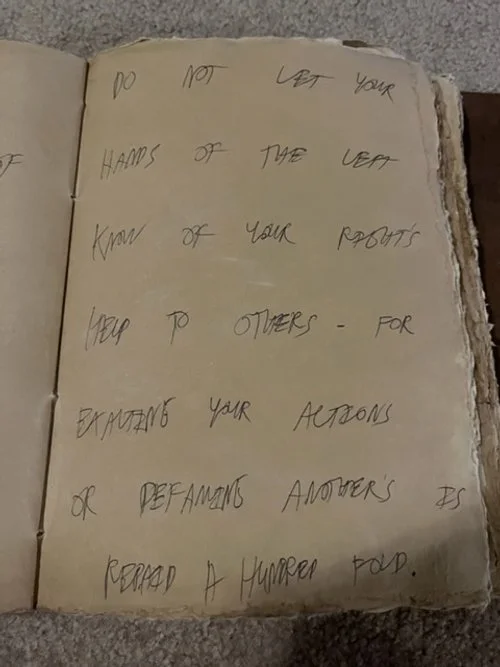 OF
DO NOT LET YOUR
HANDS OF THE LEFT
KNOW OF YOUR RIGHT'S
HELP TO OTHERS - FOR
EXALTING YOUR ACTIONS
OR DEFAMING ANOTHER'S IS
REPAID A HUNDRED FOLD.